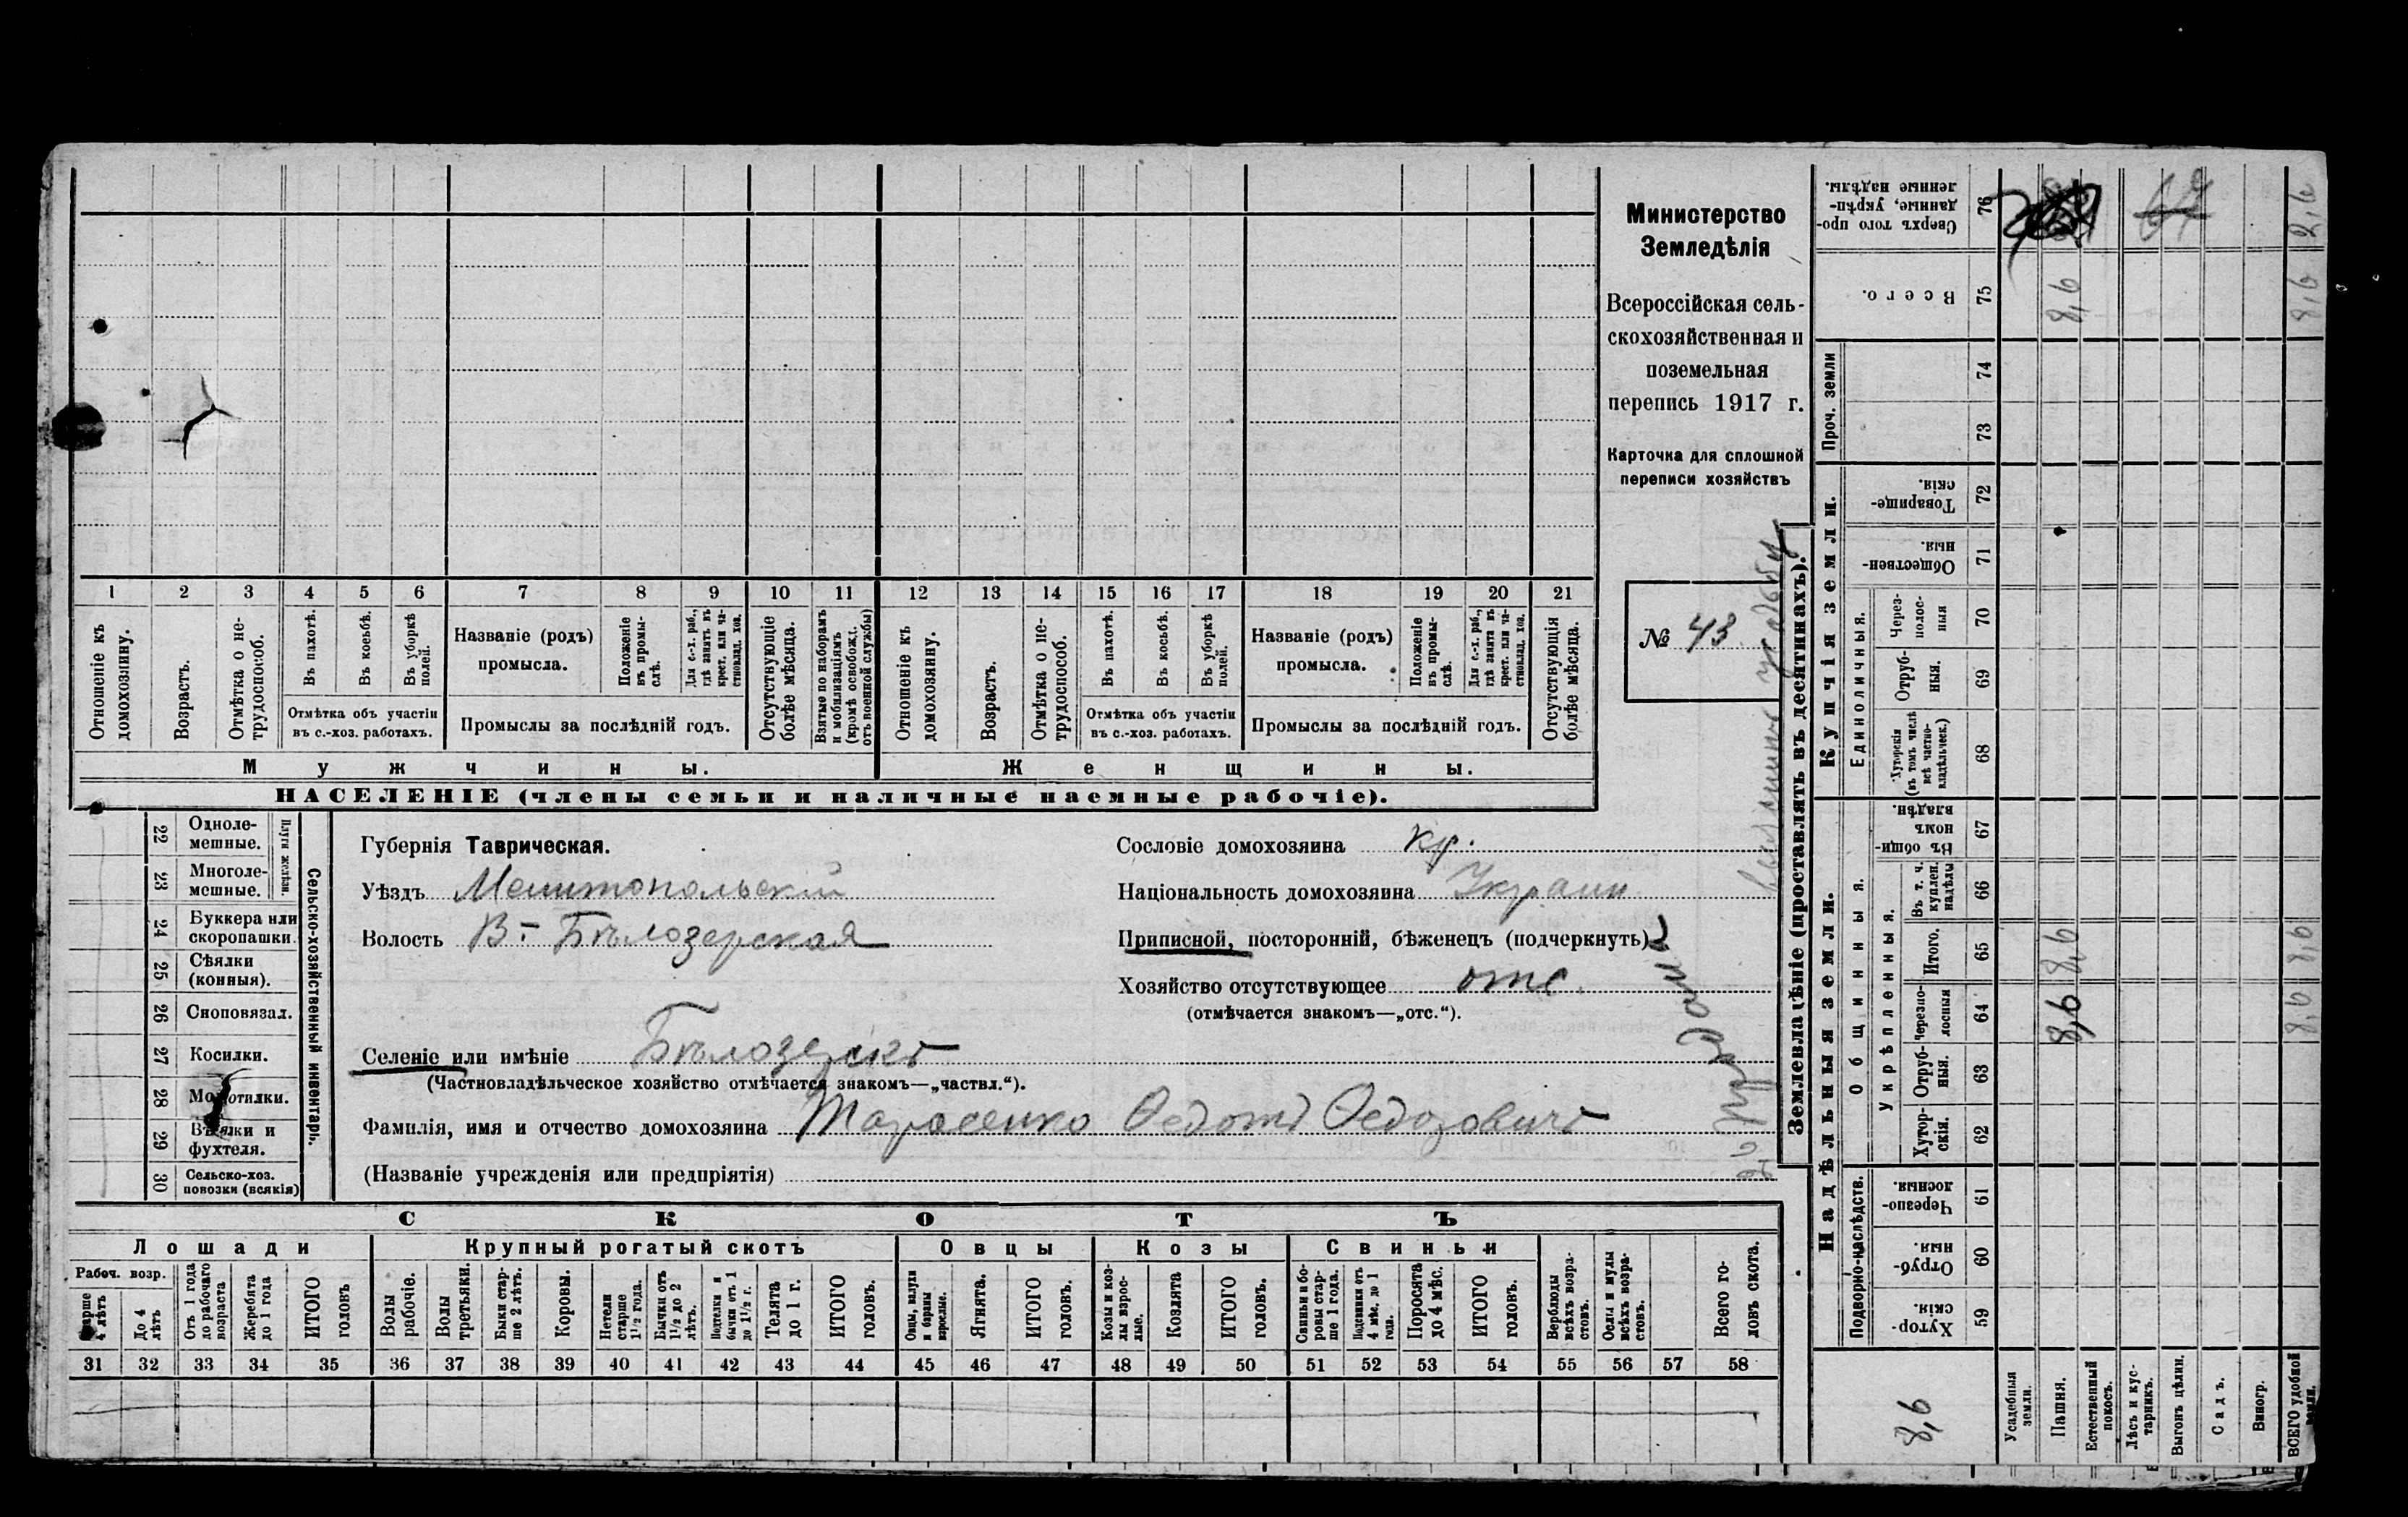 Министерство
Земледѣлія
Всероссійская сель-
скохозяйственная и
поземельная
перепись 1917 г.
Карточка для сплошной
переписи хозяйствъ
№ 43
1 2 3 4 5 6 7 8 9 10 11 12 13 14 15 16 17 18 19 20 21
Отношеніе къ домохозяину.
Возрастъ.
Отмѣтка о не-трудоспособ.
Въ пахотѣ.
Въ косьбѣ.
Въ уборкѣ полей.
Отмѣтка объ участіи
въ с.-хоз. работахъ.
Названіе (родъ)
промысла.
Положеніе въ промы-слѣ.
Для с.-х. раб., гдѣ занятъ въ крест. или ча-стновлад. хоз.
Промыслы за послѣдній годъ.
Отсутствующіе болѣе мѣсяца.
Взятые по наборамъ и мобилизаціямъ (кромѣ освобожд. отъ военной службы)
Отношеніе къ домохозяину.
Возрастъ.
Отмѣтка о не-трудоспособ.
Въ пахотѣ.
Въ косьбѣ.
Въ уборкѣ полей.
Отмѣтка объ участіи
въ с.-хоз. работахъ.
Названіе (родъ)
промысла.
Положеніе въ промы-слѣ.
Для с.-х. раб., гдѣ занята въ крест. или ча-стновлад. хоз.
Промыслы за послѣдній годъ.
Отсутствующія болѣе мѣсяца.
Мужчины.
Женщины.
НАСЕЛЕНІЕ (члены семьи и наличные наемные рабочіе).
Сельско-хозяйственный инвентарь.
Плуги желѣзн.
22 Одноле-мешные.
23 Многоле-мешные.
24 Буккера или скоропашки.
25 Сѣялки (конныя).
26 Сноповязал.
27 Косилки.
28 Молотилки.
29 Вѣялки и фухтеля.
30 Сельско-хоз. повозки (всякія)
Губернія Таврическая.
Уѣздъ Мелитопольскій
Волость В- Бѣлозерская
Селеніе или имѣніе Бѣлозерскъ
(Частновладѣльческое хозяйство отмѣчается знакомъ—„частвл.“).
Фамилія, имя и отчество домохозяина Тарасенко Ѳедотъ
(Названіе учрежденія или предпріятія)
Сословіе домохозяина кр.
Національность домохозяина Украин
Приписной, посторонній, бѣженецъ (подчеркнуть)
Хозяйство отсутствующее отс.
(отмѣчается знакомъ—„отс.“).
СКОТЪ
Лошади
Крупный рогатый скотъ
Овцы
Козы
Свиньи
Рабоч. возр.
Старше 4 лѣтъ
До 4 лѣтъ
Отъ 1 года до рабочаго возраста
Жеребята до 1 года
ИТОГО головъ
Волы рабочіе.
Волы третьяки.
Быки стар-ше 2 лѣтъ.
Коровы.
Нетели старше 1 1/2 года.
Бычки отъ 1 1/2 до 2 лѣтъ.
Подтелки и бычки отъ 1 до 1 1/2 г.
Телята до 1 г.
ИТОГО головъ.
Овцы, валухи и бараны взрослые.
Ягнята.
ИТОГО головъ.
Козы и коз-лы взрос-лые.
Козлята
ИТОГО головъ.
Свиньи и бо-ровы стар-ше 1 года.
Подсвинки отъ 4 мѣс. до 1 года.
Поросята до 4 мѣс.
ИТОГО головъ.
Верблюды всѣхъ возра-стовъ.
Ослы и мулы всѣхъ возра-стовъ.
Всего го-ловъ скота.
31 32 33 34 35 36 37 38 39 40 41 42 43 44 45 46 47 48 49 50 51 52 53 54 55 56 57 58
Землевладѣніе (проставлять въ десятинахъ).
Надѣльныя земли.
Купчія земли.
Проч. земли
Подворно-наслѣдств.
Общинныя.
Укрѣпленныя.
Единоличныя.
Хутор-скія. 59
Отруб-ныя. 60
Черезпо-лосныя. 61
Хутор-скія. 62
Отруб-ныя. 63
Черезпо-лосныя 64
Итого. 65
Въ т. ч. куплен. надѣлы 66
Въ общи-номъ владѣн. 67
Хуторскія (въ томъ числѣ всѣ частно-владѣльческ.) 68
Отруб-ныя. 69
Через-полос-ныя 70
Обществен-ныя. 71
Товарище-скія. 72
73
74
Всего. 75
Сверхъ того про-данные, укрѣп-ленные надѣлы. 76
Усадебныя земли.
Пашня. 8,6 8,6 8,6
Естественный покосъ.
Лѣсъ и кус-тарникъ.
Выгонъ цѣлин.
Садъ.
Виногр.
ВСЕГО удобной земли. 8,6 8,6 8,6 8,6
8,6